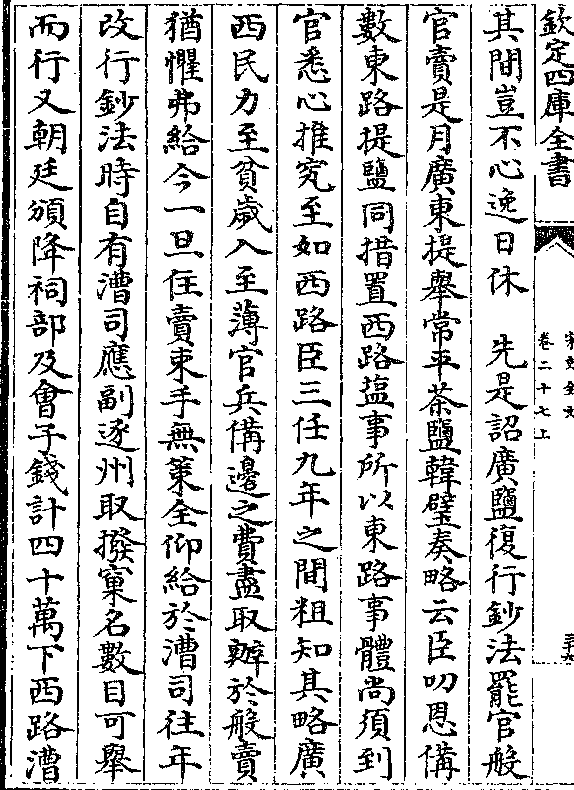 欽定四庫全書
宋史全文
卷二十七上
三十六
其間豈不心逸日休　先是詔廣鹽復行鈔法罷官般
官賣是月廣東提舉常平茶鹽韓璧奏略云臣叨恩備
數東路提鹽同措置西路塩事所以東路事體尚須到
官悉心推究至如西路臣三任九年之間粗知其略廣
西民力至貧歲入至薄官兵備邊之費盡取辦於般賣
猶懼弗給今一旦住賣束手無策全仰給於漕司往年
改行鈔法時自有漕司應副逐州取撥窠名數目可舉
而行又朝廷頒降祠部及㑹子錢計四十萬下西路漕